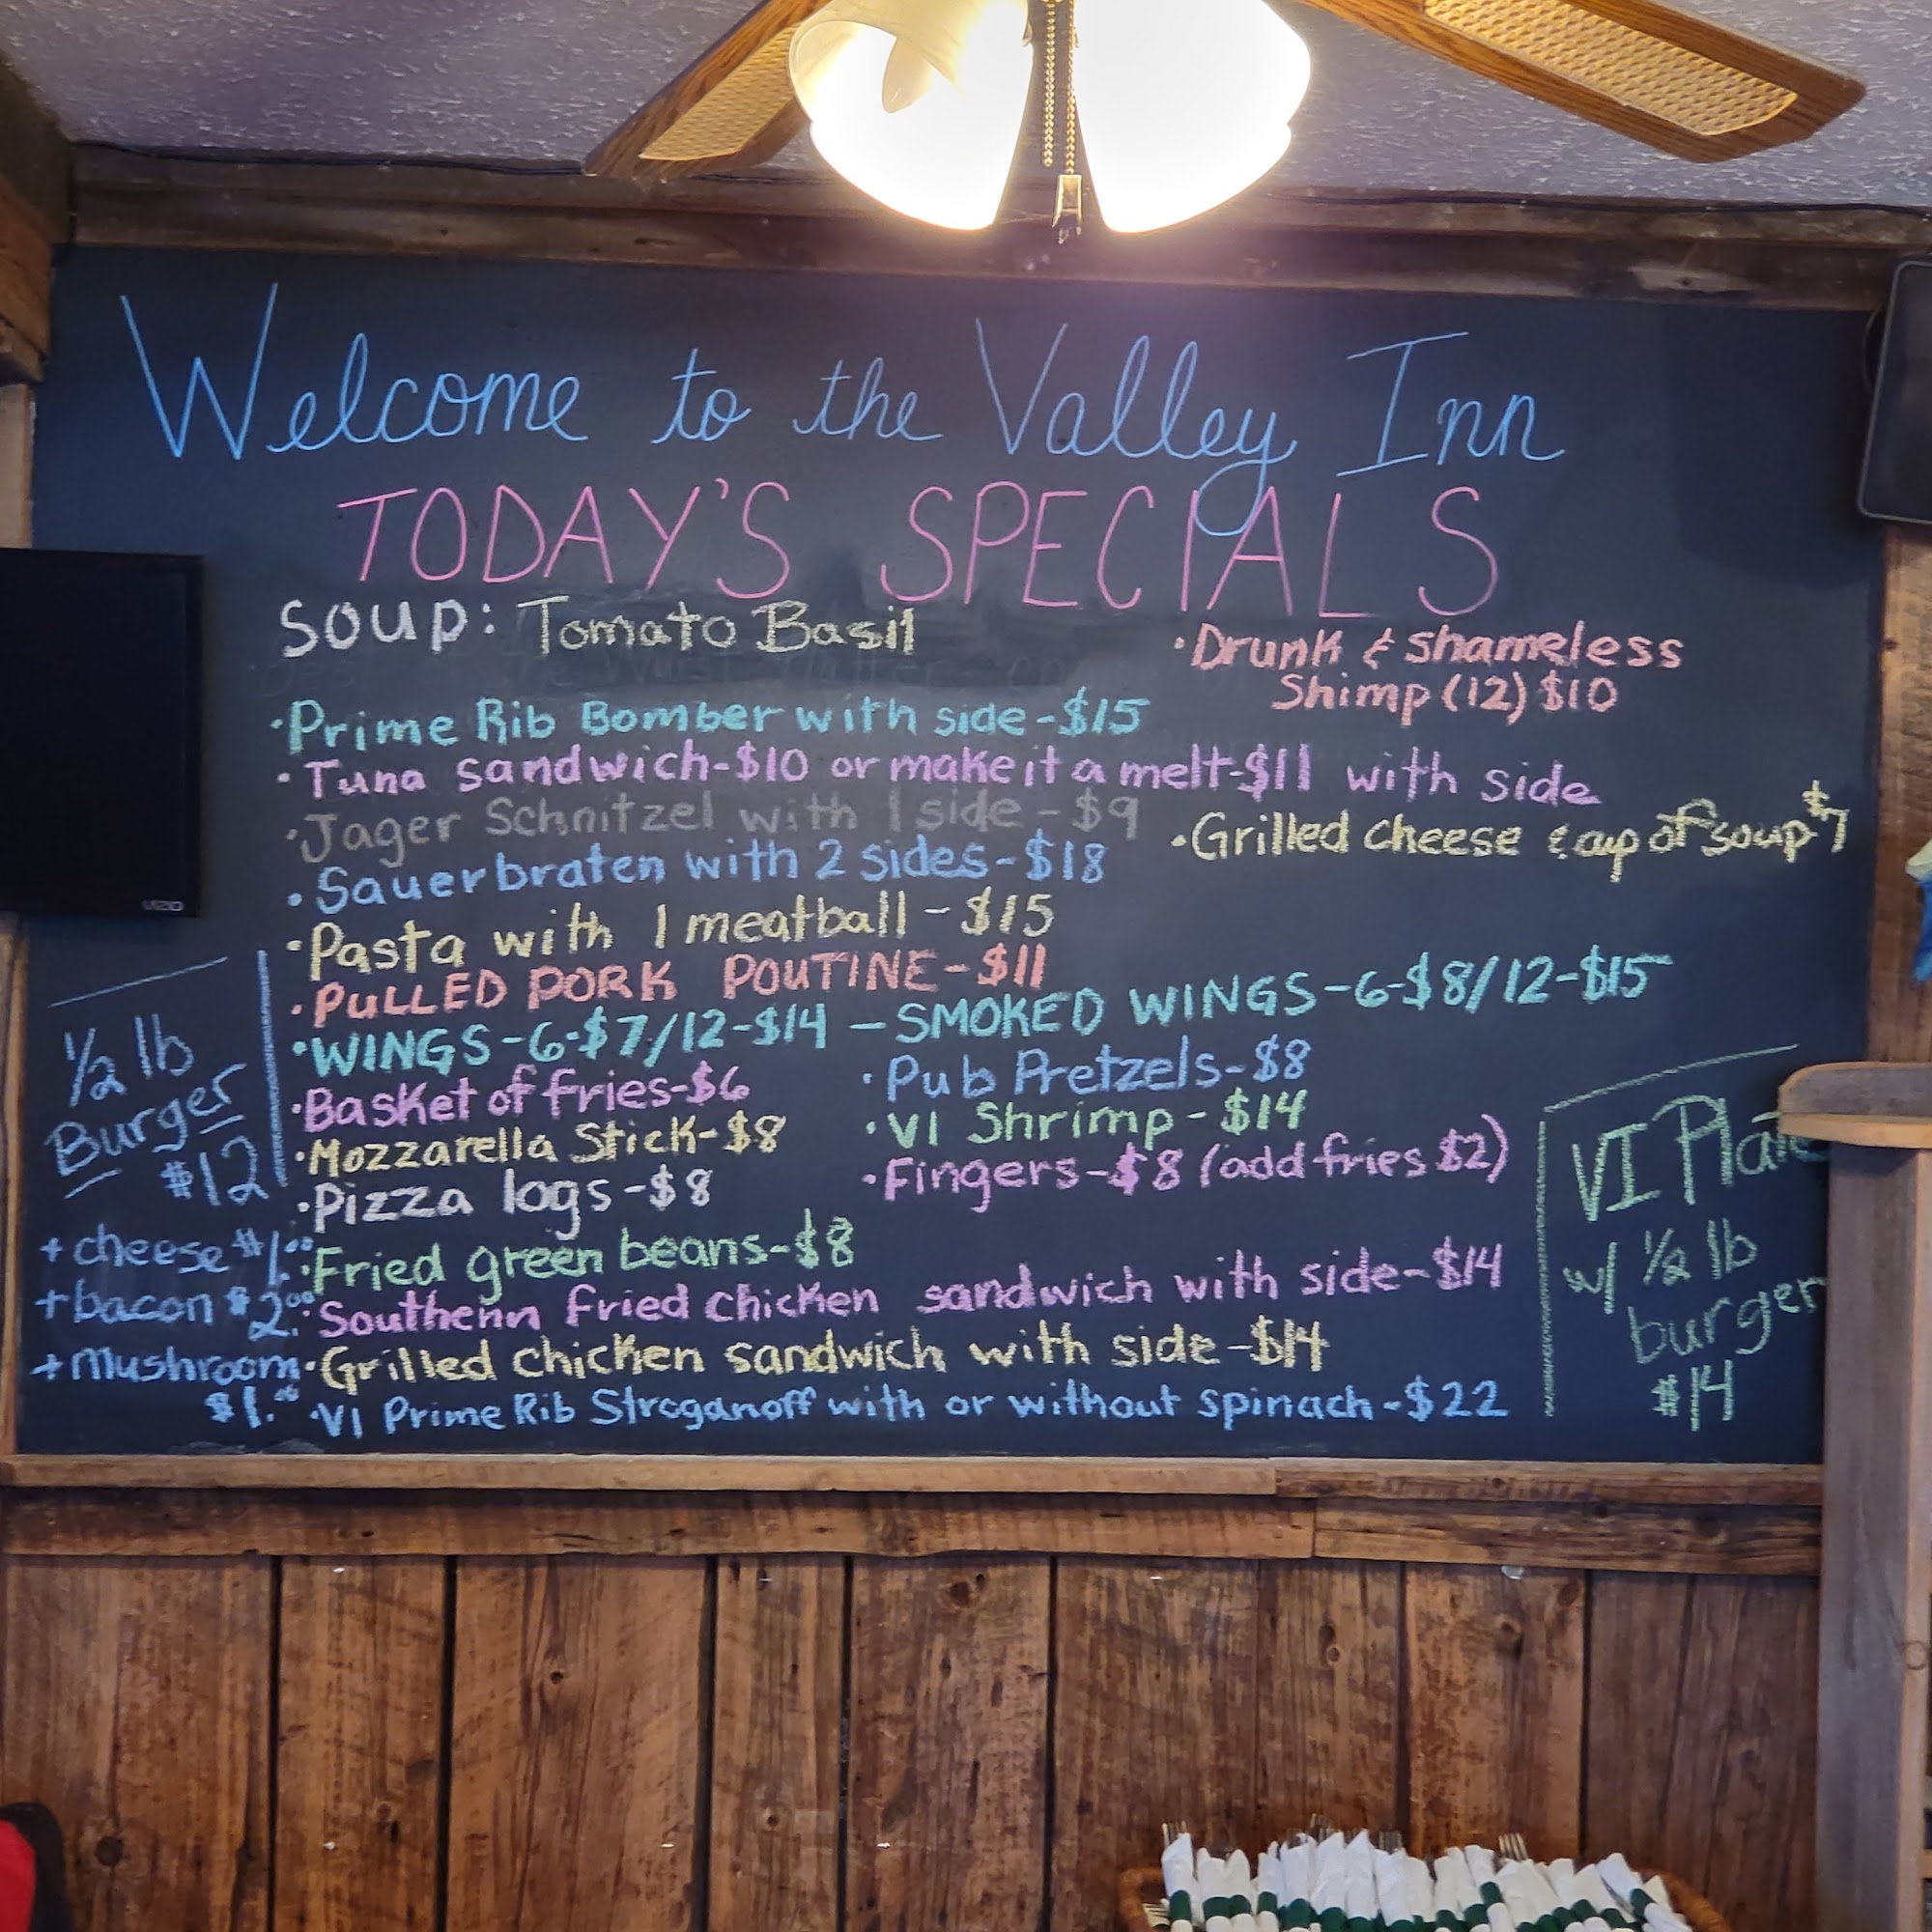 Welcome to the Valley Inn
TODAY'S SPECIALS
SOUP: Tomato Basil
•Drunk & Shameless
Shimp (12) $10
•Prime Rib Bomber with side-$15
•Tuna sandwich-$10 or make it a melt-$11 with side
•Jager Schnitzel with 1 side-$9
•Grilled cheese & cup of soup $7
•Sauerbraten with 2 sides-$18
•Pasta with 1 meatball-$15
•PULLED PORK POUTINE-$11
•WINGS-6-$7/12-$14 - SMOKED WINGS-6-$8/12-$15
•Basket of fries-$6
•Mozzarella Stick-$8
•Pizza logs-$8
•Pub Pretzels-$8
•VI Shrimp-$14
•Fingers-$8 (add fries $2)
•Fried green beans-$8
•Southenn fried chicken sandwich with side-$14
•Grilled chicken sandwich with side-$14
•VI Prime Rib Stroganoff with or without spinach-$22
1/2 lb
Burger
$12
+ cheese $1.00
+ bacon $2.00
+ Mushroom
$1.00
VI Plate
w/ 1/2 lb
burger
$14
VIZIO